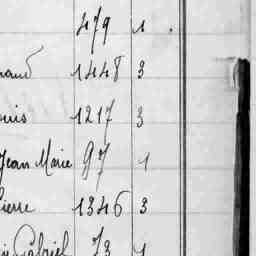 479 1
1448 3
1217 3
Jean Marie 97 1
ierre 1346 3
Gabriel 73 1